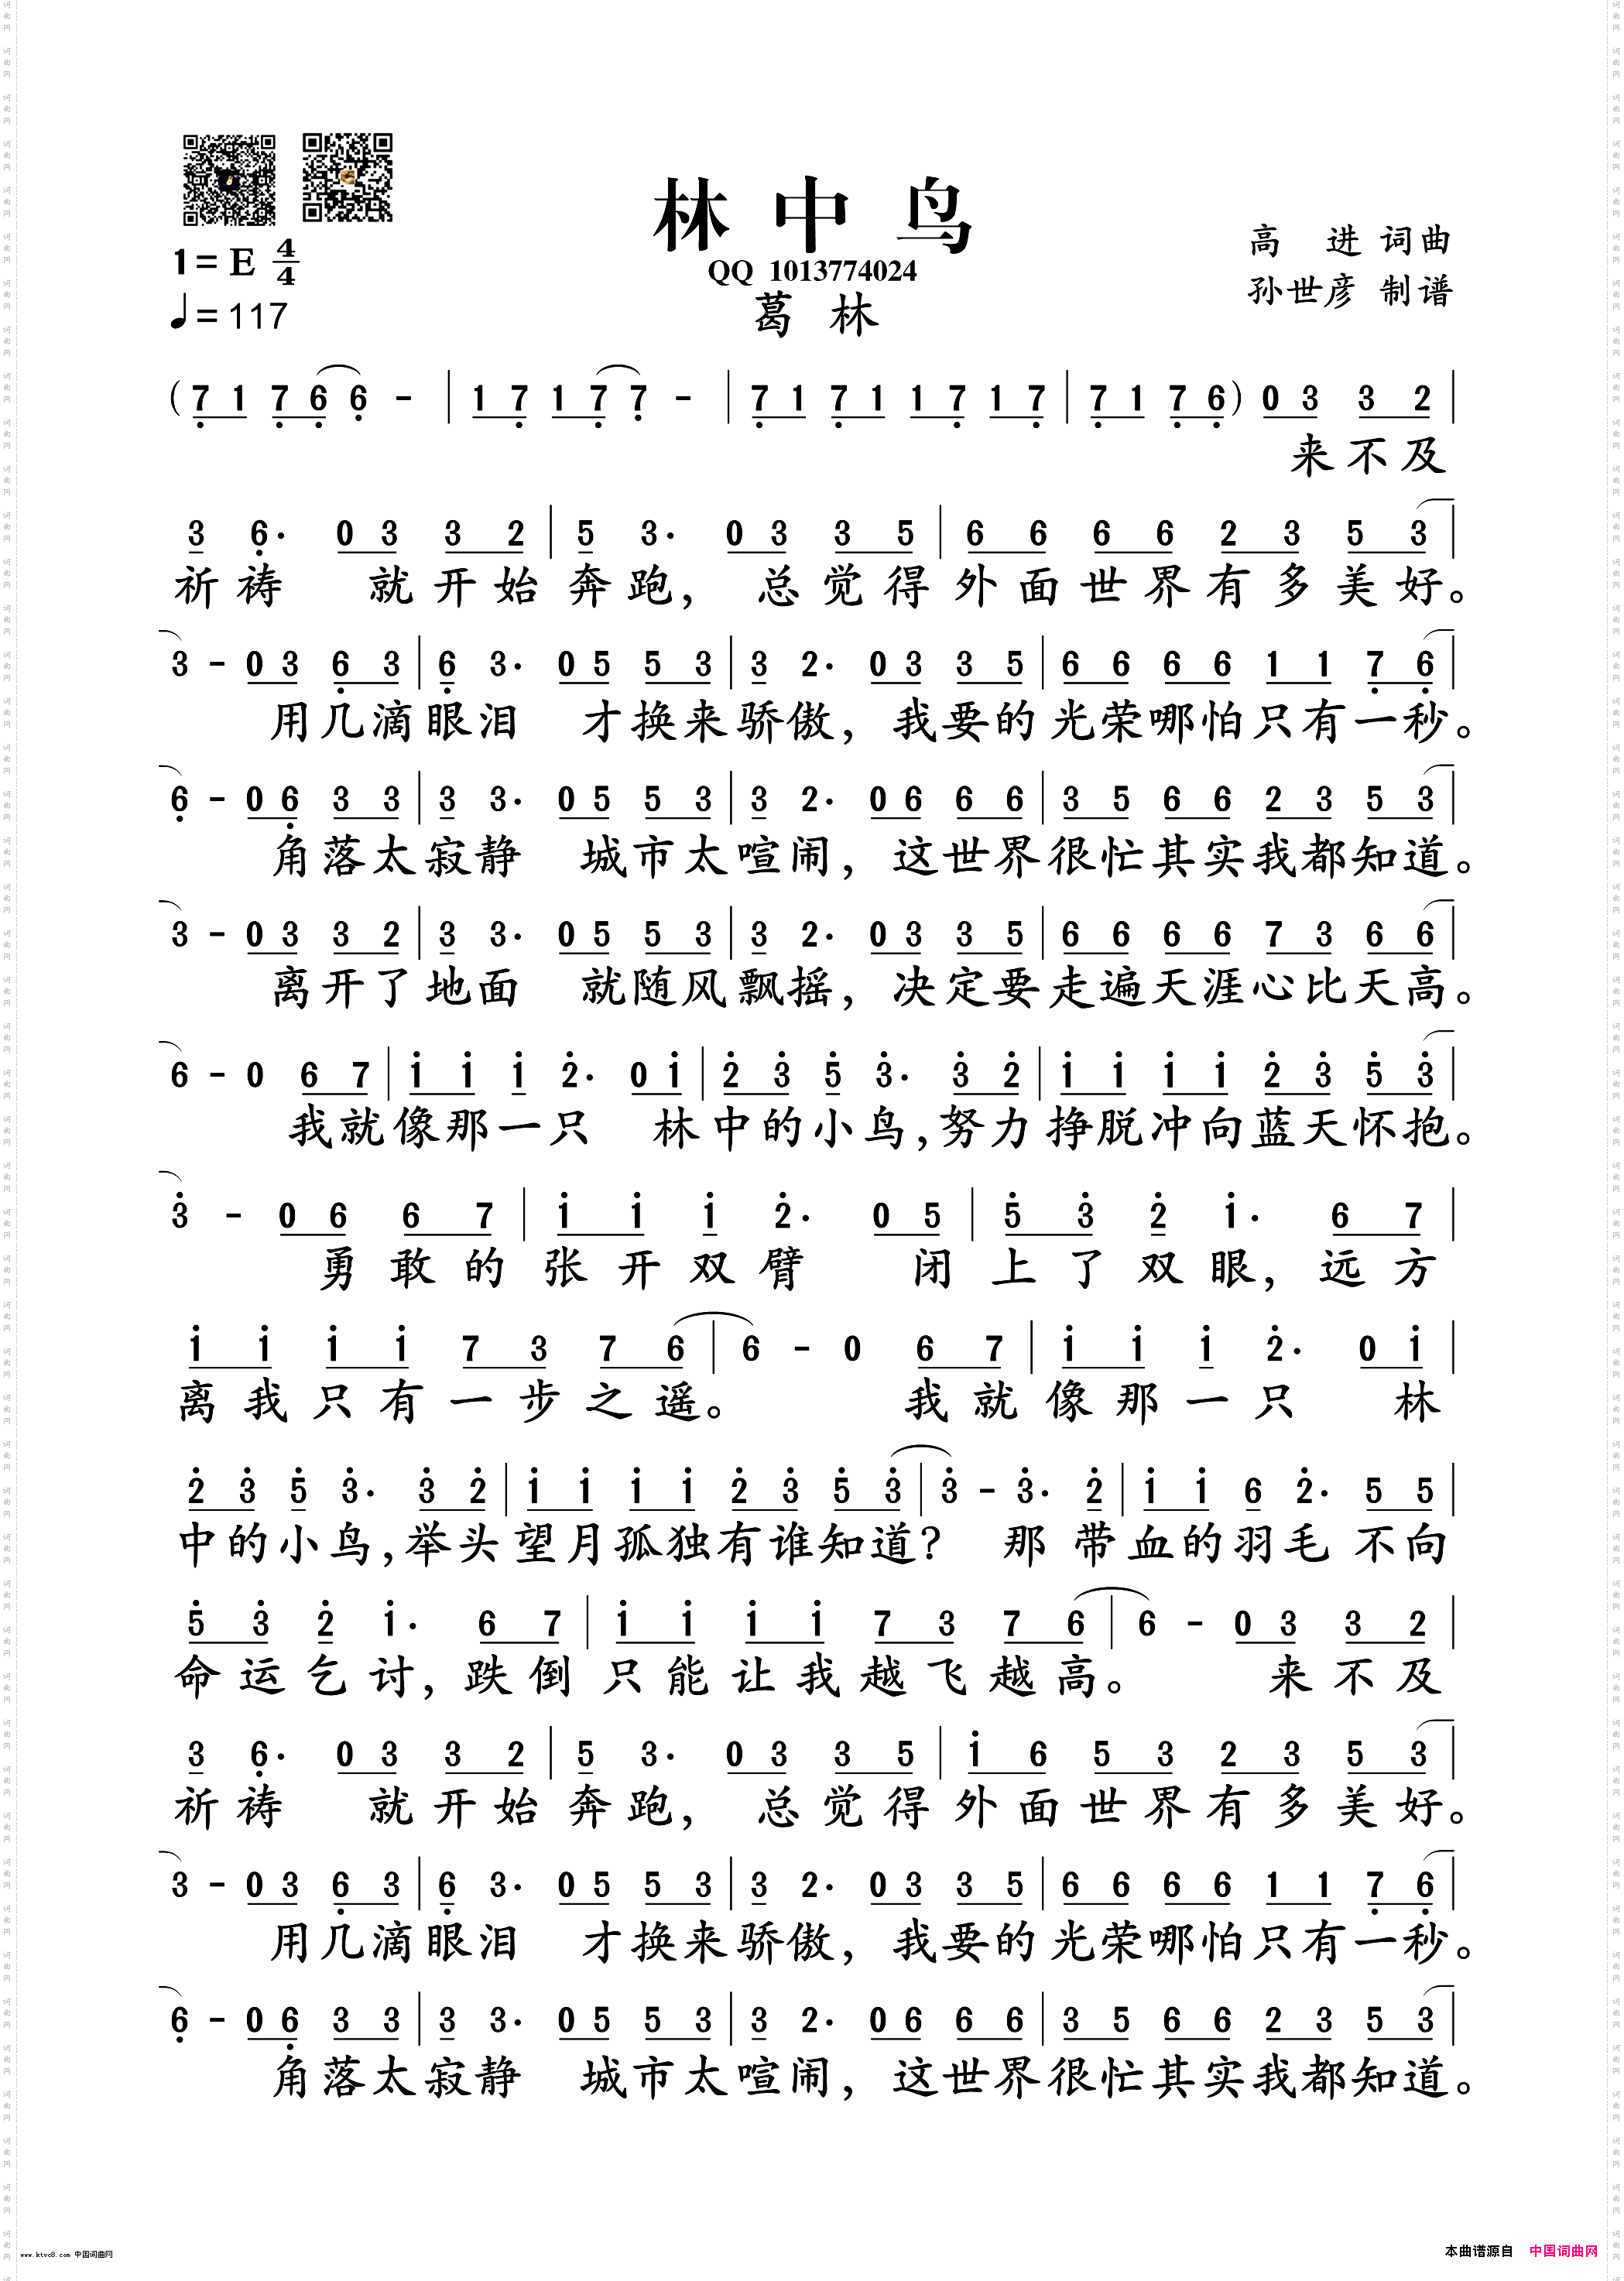 林中鸟
高 进 词曲
1=E 4/4
QQ 1013774024
孙世彦 制谱
♩=117
葛 林
(7 1 7 6 6 - | 1 7 1 7 7 - | 7 1 7 1 1 7 1 7 | 7 1 7 6) 0 3 3 2 |
来不及
3 6· 0 3 3 2 | 5 3· 0 3 3 5 | 6 6 6 6 2 3 5 3 |
祈祷 就开始奔跑, 总觉得外面世界有多美好。
3 - 0 3 6 3 | 6 3· 0 5 5 3 | 3 2· 0 3 3 5 | 6 6 6 6 1 1 7 6 |
用几滴眼泪 才换来骄傲, 我要的光荣哪怕只有一秒。
6 - 0 6 3 3 | 3 3· 0 5 5 3 | 3 2· 0 6 6 6 | 3 5 6 6 2 3 5 3 |
角落太寂静 城市太喧闹, 这世界很忙其实我都知道。
3 - 0 3 3 2 | 3 3· 0 5 5 3 | 3 2· 0 3 3 5 | 6 6 6 6 7 3 6 6 |
离开了地面 就随风飘摇, 决定要走遍天涯心比天高。
6 - 0 6 7 | 1 1 1 2· 0 1 | 2 3 5 3· 3 2 | 1 1 1 1 2 3 5 3 |
我就像那一只 林中的小鸟,努力挣脱冲向蓝天怀抱。
3 - 0 6 6 7 | 1 1 1 2· 0 5 | 5 3 2 1· 6 7 |
勇敢的张开双臂 闭上了双眼, 远方
1 1 1 1 7 3 7 6 | 6 - 0 6 7 | 1 1 1 2· 0 1 |
离我只有一步之遥。 我就像那一只 林
2 3 5 3· 3 2 | 1 1 1 1 2 3 5 3 | 3 - 3· 2 | 1 1 6 2· 5 5 |
中的小鸟,举头望月孤独有谁知道? 那带血的羽毛不向
5 3 2 1· 6 7 | 1 1 1 1 7 3 7 6 | 6 - 0 3 3 2 |
命运乞讨, 跌倒只能让我越飞越高。 来不及
3 6· 0 3 3 2 | 5 3· 0 3 3 5 | 1 6 5 3 2 3 5 3 |
祈祷 就开始奔跑, 总觉得外面世界有多美好。
3 - 0 3 6 3 | 6 3· 0 5 5 3 | 3 2· 0 3 3 5 | 6 6 6 6 1 1 7 6 |
用几滴眼泪 才换来骄傲, 我要的光荣哪怕只有一秒。
6 - 0 6 3 3 | 3 3· 0 5 5 3 | 3 2· 0 6 6 6 | 3 5 6 6 2 3 5 3 |
角落太寂静 城市太喧闹, 这世界很忙其实我都知道。
www.ktvc8.com 中国词曲网
本曲谱源自 中国词曲网